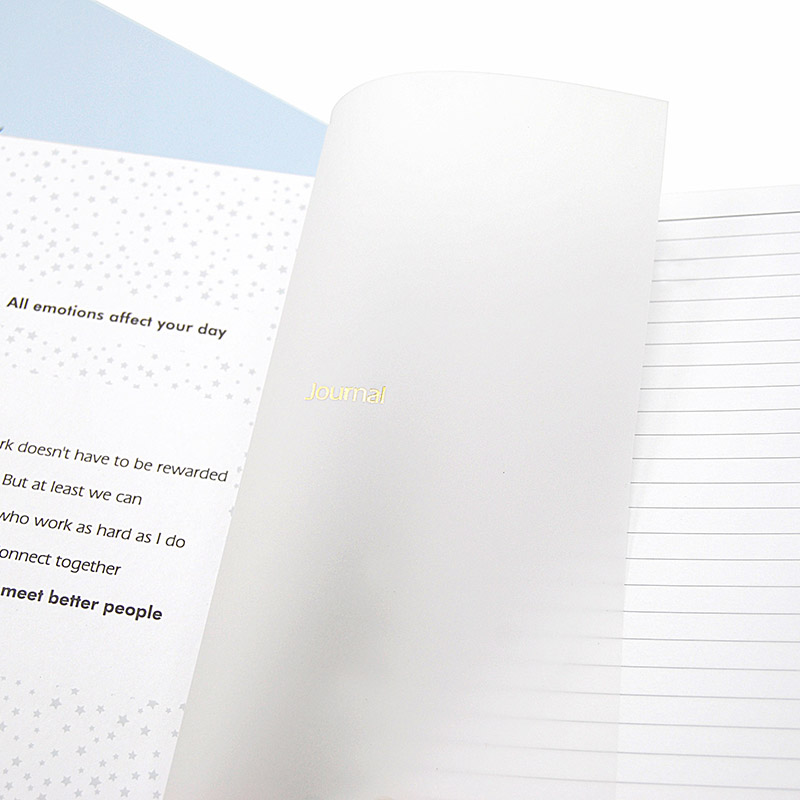 All emotions affect your day
Journal
rk doesn't have to be rewarded
But at least we can
who work as hard as I do
onnect together
meet better people